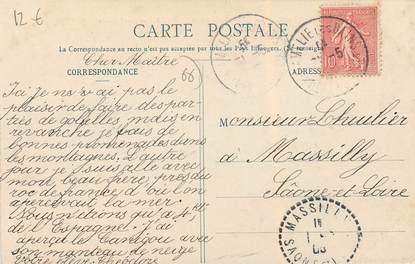 12 €
CARTE POSTALE
La Correspondance au recto n'est pas acceptée par tous les Pays Etrangers. (Se renseigner
CORRESPONDANCE
ADRES
Cher Maître
66
Ici je n'ai pas le
plaisir de faire des par-
ties de goyelles, mais en
revanche je fais de
bonnes promenades dans
les montagnes. L'autre
jour je suis allé avec
mon beau frère, près du
roc de france d'où l'on
apercevait la mer.
Nous n'étions qu'à
de l'Espagne. J'ai
aperçu le Canigou avec
son manteau de neige
Votre
Monsieur Lhuilier
à Massilly
Saône-et-Loire
10
MASSILLY